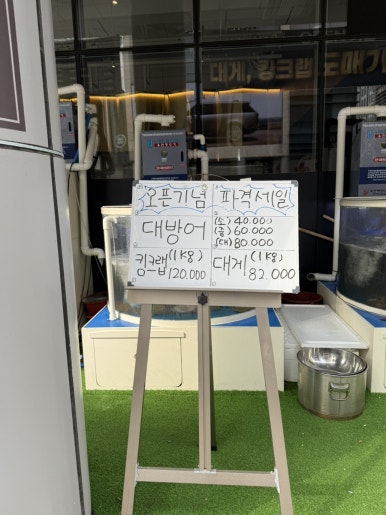 대게, 킹크랩 도매가
오픈기념 파격세일
대방어
(소) 40.000
(중) 60.000
(대) 80.000
킹크랩 (1kg) 120.000
대게 (1kg) 82.000